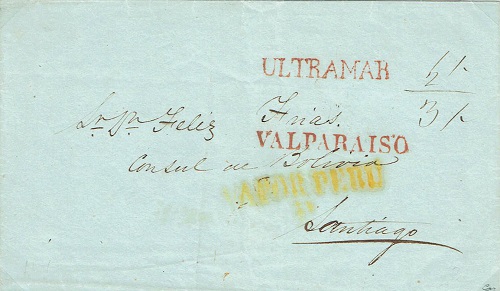 ULTRAMAR
2/-
3/-
Sr. Dn. Feliz Frias.
VALPARAISO
Consul de Bolivia
VAPOR PERU
Santiago